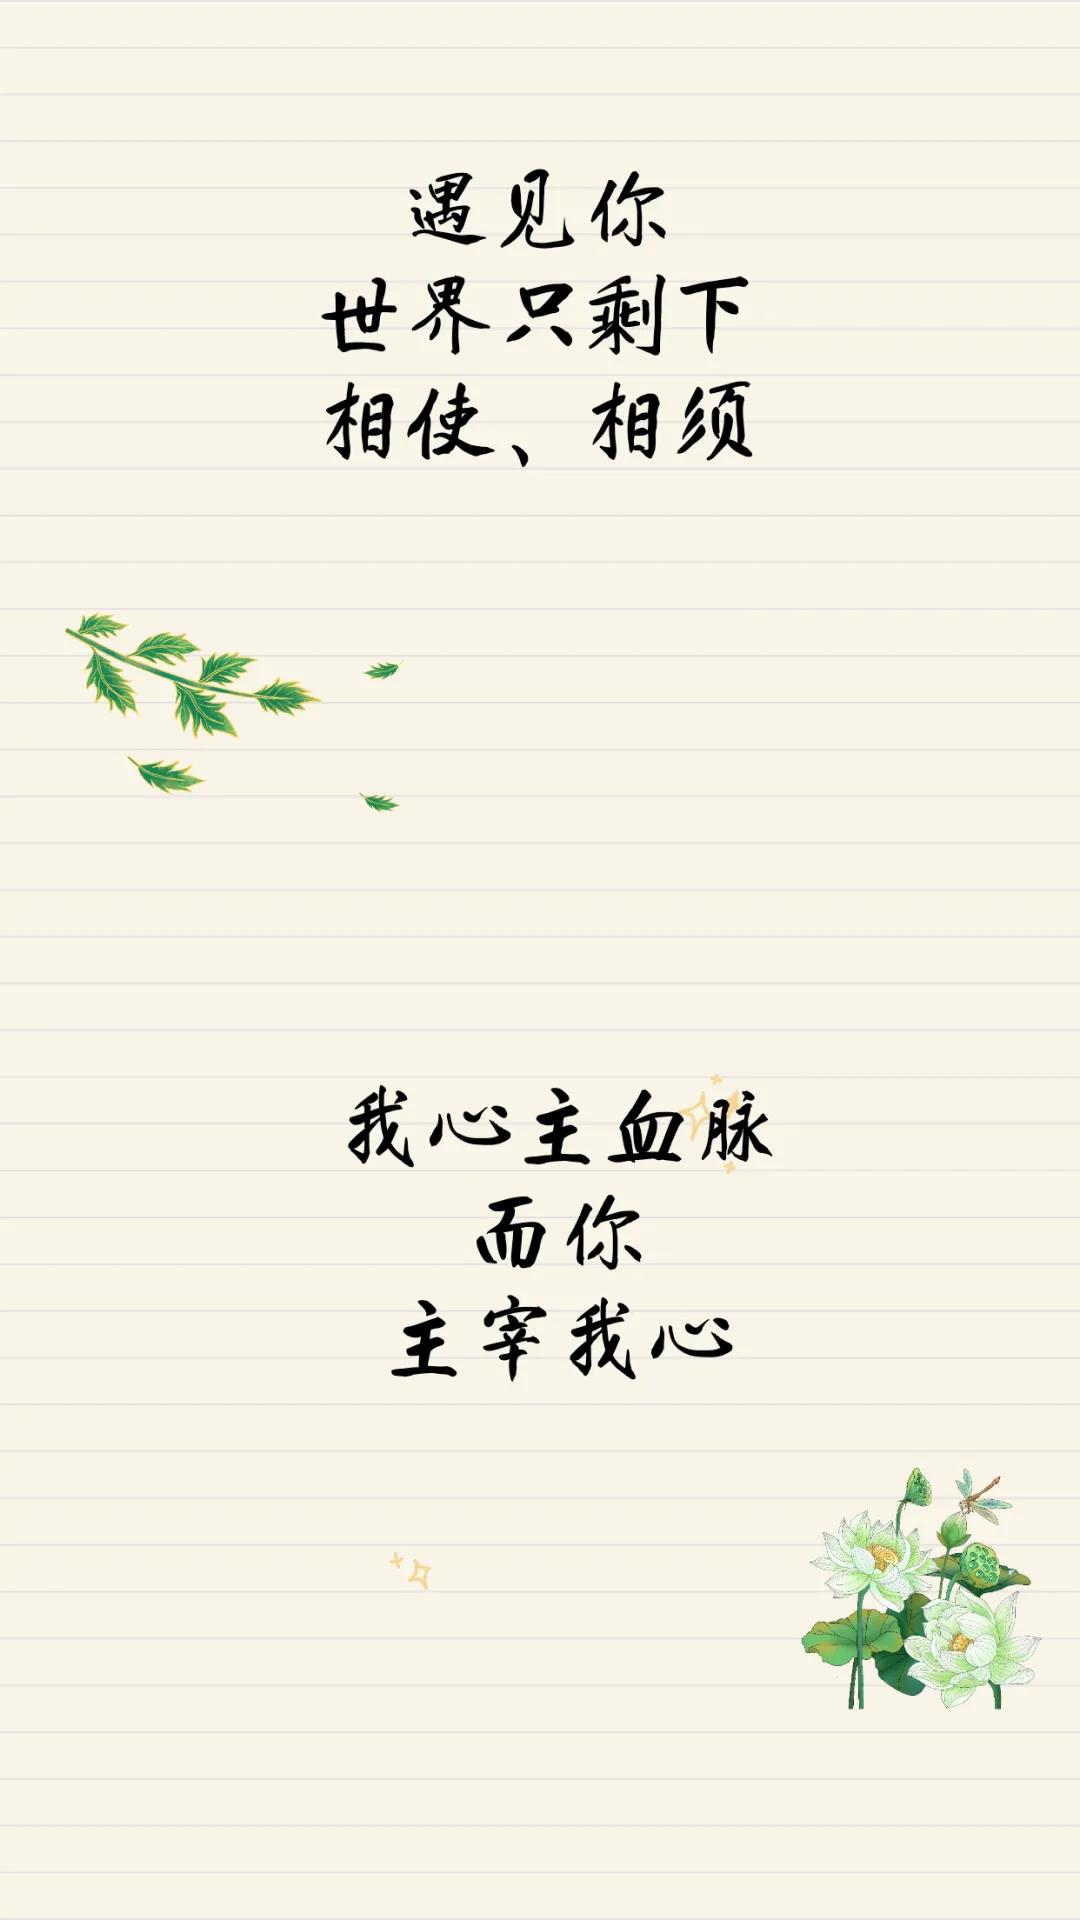 遇见你
世界只剩下
相使、相须
我心主血脉
而你
主宰我心